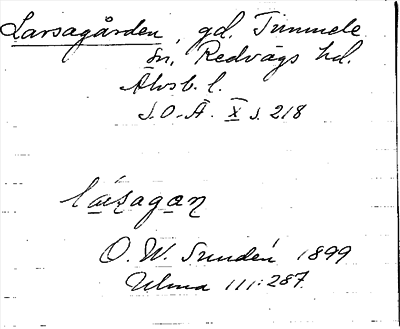 Larsagården, gd. Timmele
sn, Redvägs hd.
Älvsb. l.
S.O.Ä. X s. 218
O. W. Sundén 1899
Ulma 111:287.